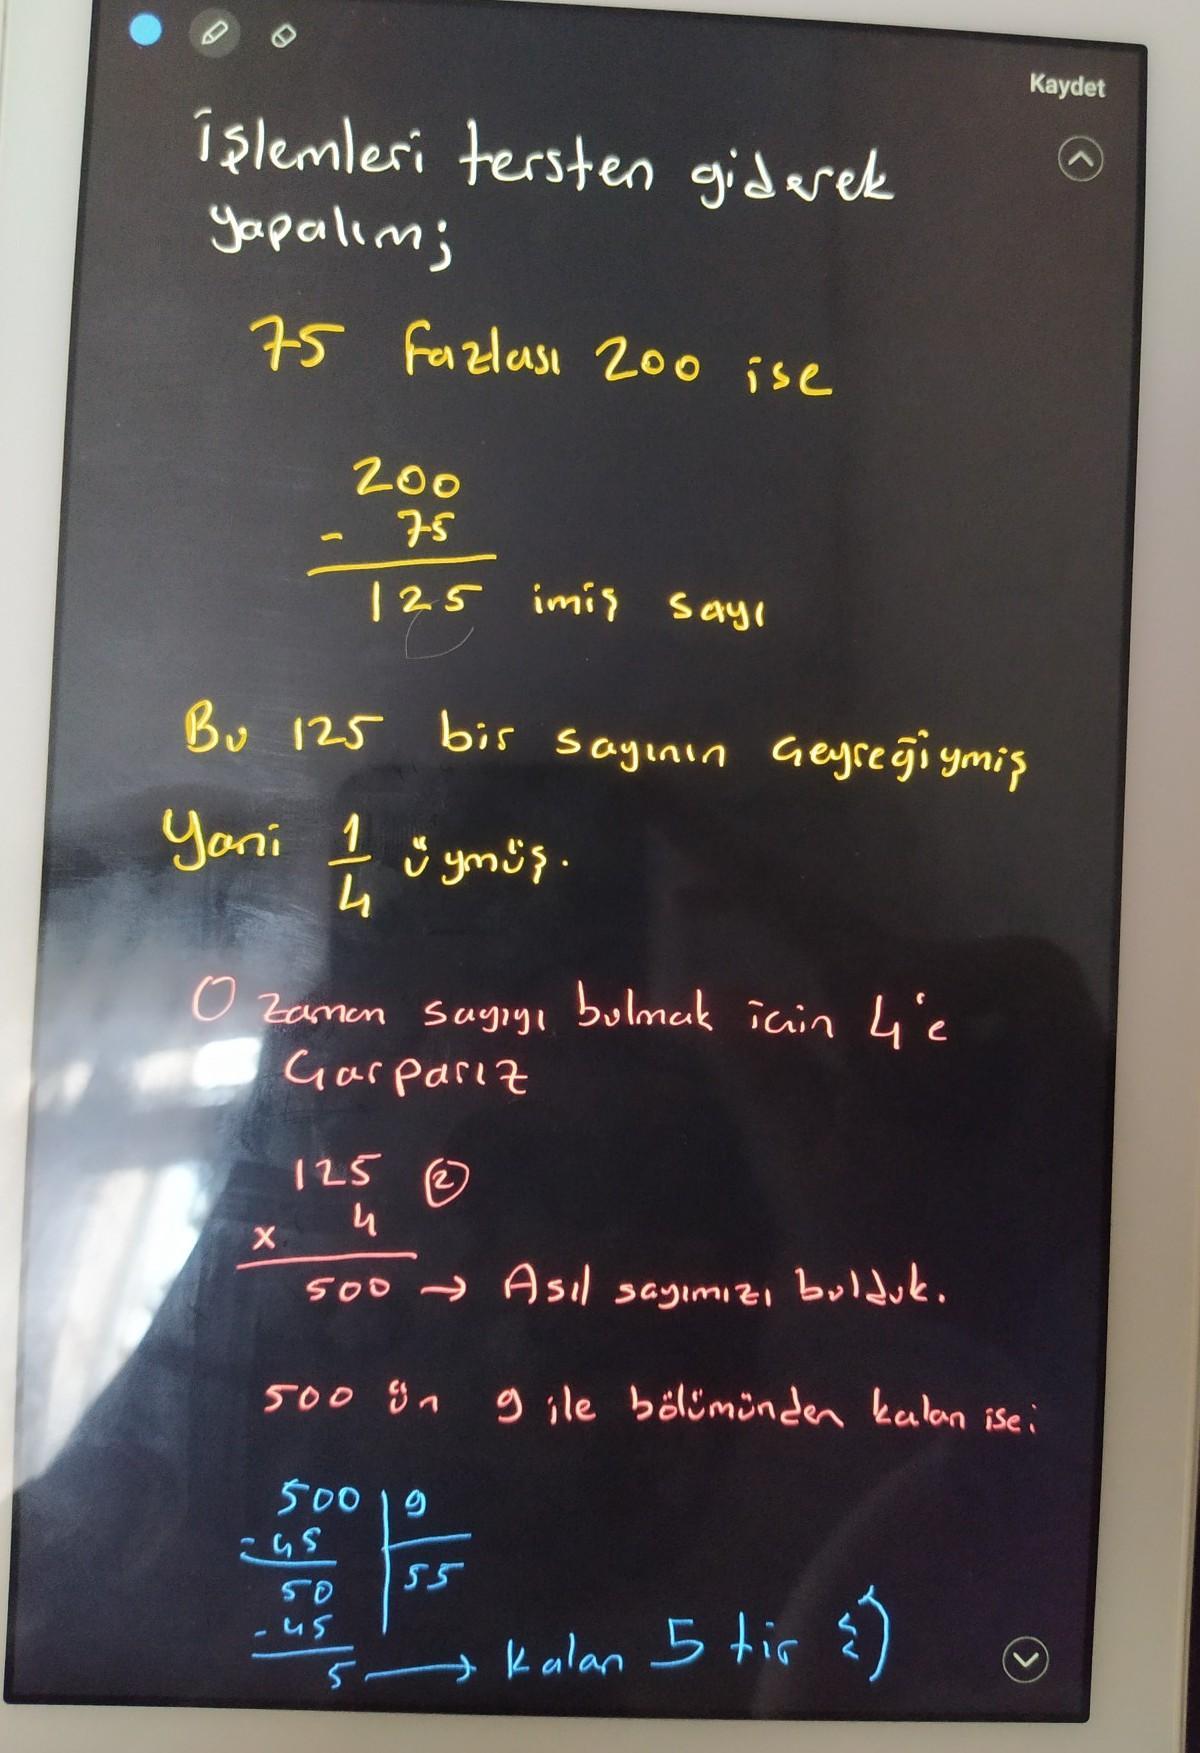 Kaydet
İşlemleri tersten giderek
yapalım;
75 fazlası 200 ise
200
- 75
125 imiş sayı
Bu 125 bir sayının çeyreğiymiş
Yani 1/4 üymüş.
O zaman sayıyı bulmak için 4'e
Çarparız
125 ②
x 4
500 → Asıl sayımızı bulduk.
500 ün 9 ile bölümünden kalan ise;
500 | 9
- 45
50 | 55
- 45
5 → kalan 5 tir :)